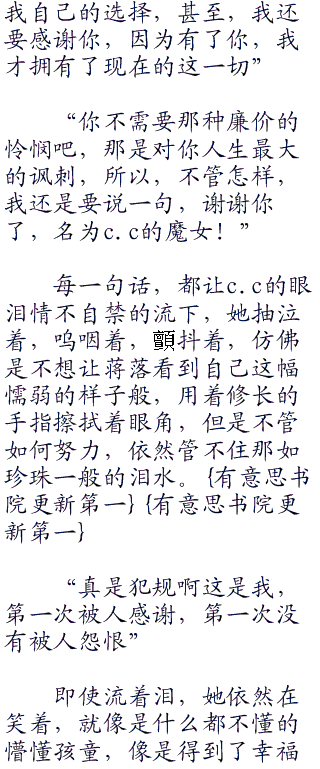 我自己的选择，甚至，我还
要感谢你，因为有了你，我
才拥有了现在的这一切”
“你不需要那种廉价的
怜悯吧，那是对你人生最大
的讽刺，所以，不管怎样，
我还是要说一句，谢谢你
了，名为c.c的魔女！”
每一句话，都让c.c的眼
泪情不自禁的流下，她抽泣
着，呜咽着，顫抖着，仿佛
是不想让蒋落看到自己这幅
懦弱的样子般，用着修长的
手指擦拭着眼角，但是不管
如何努力，依然管不住那如
珍珠一般的泪水。{有意思书
院更新第一}{有意思书院更
新第一}
“真是犯规啊这是我，
第一次被人感谢，第一次没
有被人怨恨”
即使流着泪，她依然在
笑着，就像是什么都不懂的
懵懂孩童，像是得到了幸福